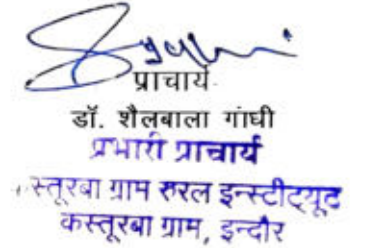 प्राचार्य
डॉ. शैलबाला गांधी
प्रभारी प्राचार्य
स्तूरबा ग्राम रुरल इन्स्टीट्यूट
कस्तूरबा ग्राम, इन्दौर